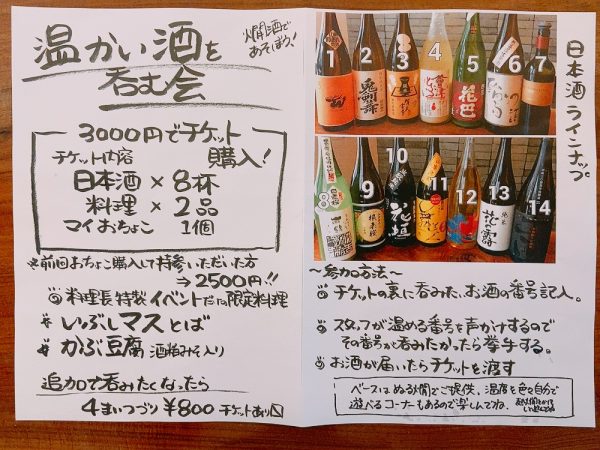 温かい酒を
呑む会
燗酒で
あそぼう!
3000円でチケット
チケット内容 購入!
日本酒 × 8杯
料理 × 2品
マイおちょこ 1個
※前回おちょこ購入して持参いただいた方
→ 2500円!!
料理長特製イベントだけの限定料理
いぶしマスとば
かぶ豆腐 酒粕みそ入り
追加で呑みたくなったら
4まいつづり ¥800 チケットあり
日本酒ラインナップ。
1 2 3 4 5 6 7
花巴
8 9 10 11 12 13 14
花垣
花の露
〜参加方法〜
チケットの裏に呑みたいお酒の番号記入。
スタッフが温める番号を声かけするので
その番号が呑みたかったら挙手する。
お酒が届いたらチケットを渡す
ベースはぬる燗でご提供、温度を色々自分で
遊べるコーナーもあるので楽しんでね。